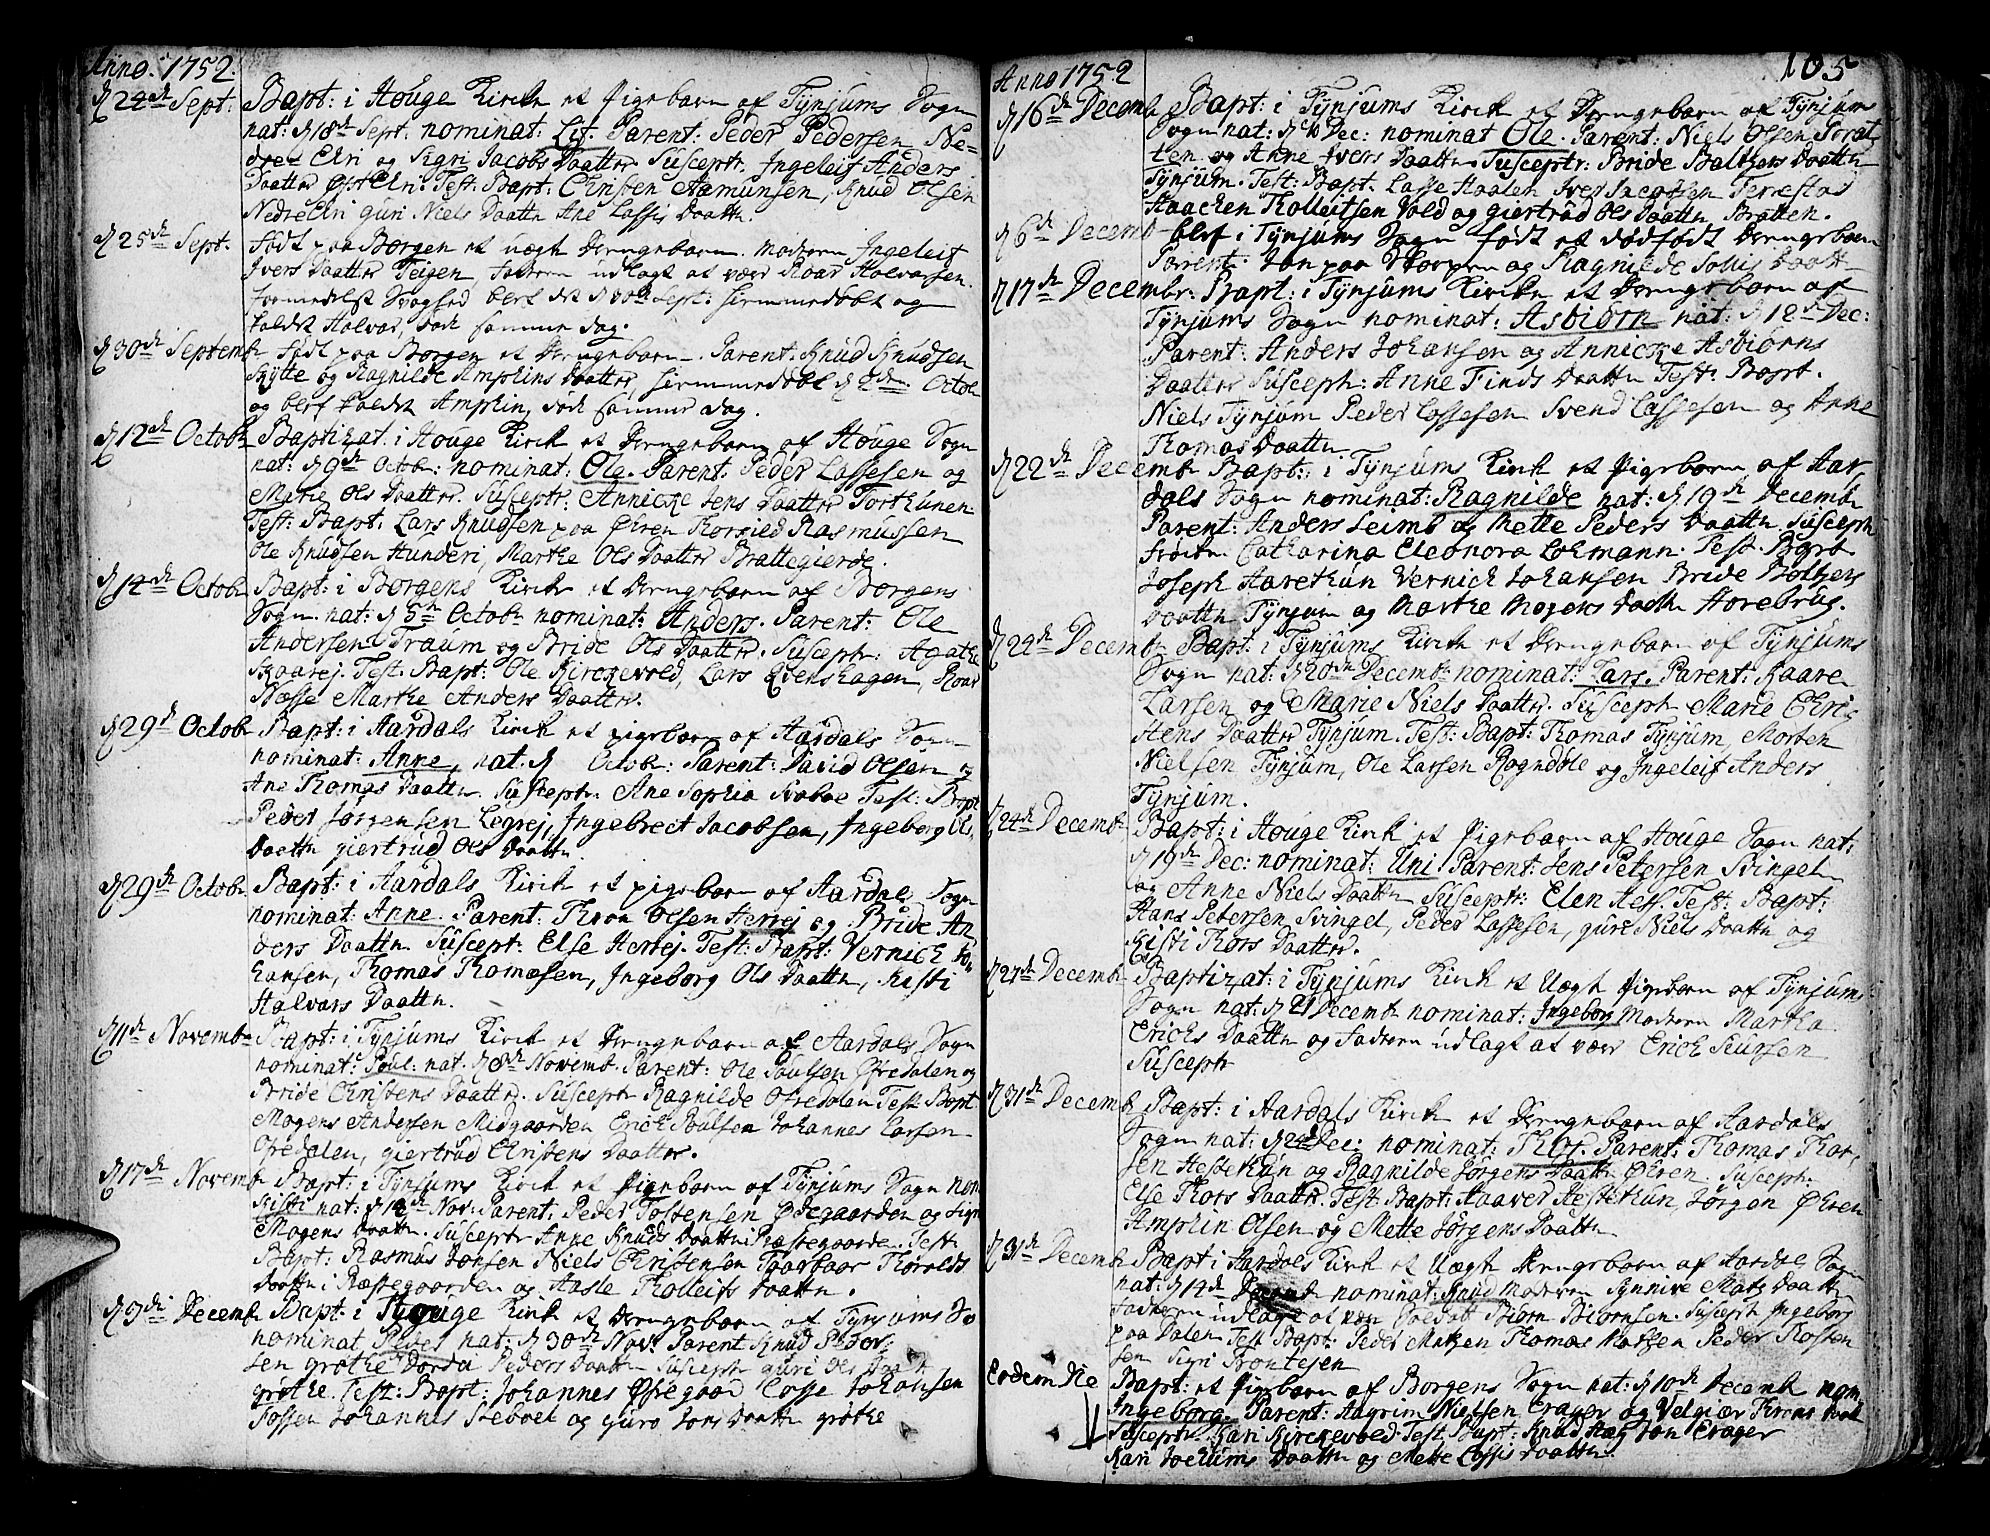 Anno. 1752.
d 24de Sept: Bapt: i Houge Kirck et Pigebarn af Tynjums Sogn
nat: d 18de Sept. nominat: Parent: Peder Pedersen Ne-
dre Elri og Sigri Jacobs Daatter Susceptr. Ingeleif Anders
Daatter Test: Bapt: Christen Aamunsen, Knud Olsen
Nedre Elri guri Niels Daattr Ane Lassis Daattr.
d 25de Sept. Født paa Borgen et uægt Drengebarn. Moderen Ingeleif
Ivers Daatter Teigen, Faderen udlagt at være Roar Halvorsen.
formedelst Svaghed blef det d 30de Sept: hiemmedøbt og
kaldet Halvor, døde samme dag.
d 30de Septemb Født paa Borgen et Drengebarn. Parent. Knud Knudsen
Skytte og Ragnilde Amphins Daatter, hiemmedøbt d 2den Octob
og blef kaldet Amphin, døde samme dag.
d 12de Octob Baptizat. i Houge Kirck et Drengebarn af Houge Sogn
nat: d 9de Octobr: nominat: Ole. Parent. Peder Lassesen og
Marie Ols Daatter. Susceptr: Annicke Jens Daatter Torthunen
Test: Bapt: Lars Knudsen paa Øhren Thorsied Rasmussen
Ole Knudsen Hunderi, Marthe Ols Daatter Brattegierde.
d 14de Octob Bapt: i Borgens Kirck et Drengebarn af Borgens
Sogn. nat: d 5de Octobr nominat: Anders. Parent: Ole
Andersen Traum og Bride Ols Daatter. Susceptr: Agathe
Skaarej. Test. Bapt: Ole Kirckevold, Lars Qvenshagen, Roar
Næsse Marthe Anders Daatter.
d 29de Octob Bapt: i Aardals Kirck et pigebarn af Aardals Sogn
nominat: Anne, nat. d Octob: Parent: David Olsen og
Ane Thomas Daattr. Susceptr. Ane Sophia Test: Bapt
Peder Jørgensen Legrej, Ingebrect Jacobsen, Ingeborg Ols
Daattr giertrud Ols Daattr
d 29de Octob Bapt: i Aardals Kirck et pigebarn af Aardals Sogn
nominat: Anne. Parent: Thron Olsen Herrej og Bride An
ders Daattr. Suscept: Else Herrej. Test: Bapt: Vernich Jo-
hansen, Thomas Thomasen, Ingeborg Ols Daattr, Kisti
Halvors Daattr.
d 11de Novemb Bapt: i Tynjums Kirck et Drengebarn af Aardals Sogn
nominat: Poul: nat. d 8de Novemb. Parent: Ole Poulsen Ofredalen og
Bride Christens Daatter. Susceptr Ragnilde Ofredalen Test Bapt
Mogens Andersen Midgaarden Erich Poulsen Johannes Larsen
Ofredalen, giertrud Christens Daatter.
d 17de Novemb Bapt: i Tynjums Kirck et Pigebarn af Tynjums Sogn nom
Kisti nat: d 12de Nov: Parent: Peder Tostensen Ødegaarden og Sigri
Mogens Daattr. Susceptr Anne Knuds Daattr Præstegaarden. Test:
Bapt: Rasmus Jonsen Niels Christensen Thorolds
Daattr i Præstegaarden og Aasle Tholleifs Daattr.
d 3die Decemb Bapt: i Houge Kirck et Drengebarn af Tynjums So
nominat Peder nat: d 30de Nov: Parent Knud
sen grøthe Dorda Peders Daattr Susceptr guri Ols Daatt
grøthe. Test: Bapt: Johannes Øfregaard Lasse Johansen
Fossen Johannes Steboet og guro Jons Daattr grøthe

105
Anno 1752
d 16de Decemb Bapt: i Tynjums Kirck et Drengebarn af Tynjums
Sogn nat: d Dec: nominat Ole. Parent: Niels Olsen
og Anne Ivers Daattr. Susceptr: Bride Baltzers Daattr
Tynjum. Test: Bapt. Lasse Haalen Iver Jacobsen Terrestad
Haachen Tholleifsen Vold og giertrud Ols Daattr Bratten.
d 6de Decemb blef i Tynjums Sogn født et dødfødt Drengebarn
Parent: Jon paa og Ragnilde Daatt
d 17de Decembr. Bapt: i Tynjums Kircke et Drengebarn af
Tynjums Sogn nominat: Asbiørn nat: d 12de Dec:
Parent: Anders Johansen og Annicke Asbiørns
Daatter Susceptr: Anne Finds Daattr Test: Bapt.
Niels Tynjum Peder Lassesen Svend Lassesen og Anne
Thomas Daattr
d 22de Decemb Bapt: i Tynjums Kirck et Pigebarn af Aar,
dals Sogn nominat: Ragnilde nat: d 19de Decemb
Parent: Anders Leimb og Mette Peders Daattr Susceptr
Frøiken Catharina Eleonora Lohmann. Test. Bapt
Joseph Aarethun Vernich Johansen Bride Boltzers
Daattr Tynjum og Marthe Mogens Daattr Horebrug.
d 24de Decemb Bapt: i Tynjums Kirck et Drengebarn af Tynjums
Sogn nat: d 20de Decemb nominat: Lars. Parent: Kaare
Larsen og Marie Niels Daatter. Susceptr Marie Chri
stens Daatter Tynjum. Test: Bapt: Thomas Tynjum, Morten
Nielsen Tynjum, Ole Larsen Rogndøle og Ingeleif Anders
Tynjum.
d 24de Decemb Bapt: i Houge Kirck et Pigebarn af Houge Sogn nat:
d 19de Dec: nominat: Uni Parent: Jens Petersen Svingel
og Anne Niels Daattr Susceptr: Elen Hess. Test: Bapt:
Hans Petersen Svingel, Peder Lassesen, guri Niels Daattr og
Kisti Thors Daatter.
d 27de Decemb Baptizat: i Tynjums Kirck et Uægt Pigebarn af Tynjums
Sogn nat: d 21 Decemb nominat: Ingeborg Moderen Martha
Erichs Daattr og Faderen udlagt at være Erich Siursen
Susceptr
d 31de Decemb Bapt: i Aardals Kirck et Drengebarn af Aardals
Sogn nat: d 24de Dec: nominat: Thor. Parent: Thomas Thor
sen Hestethun og Ragnilde Jørgens Daattr Øhren. Susceptr:
Else Thors Daatter. Test: Bapt: Haaver Hestethun, Jørgen Øhren
Amphin Olsen og Mette Jørgens Daattr
d 31de Decemb Bapt i Aardals Kirck et Uægt Drengebarn af Aardals Sogn
nat: d 14de nominat: Knud Moderen Synnive Mats Daattr
Faderen udlagt at være Soldat Biørn Biørnsen. Susceptr Ingeborg
paa Dalen. Test Bapt: Peder Matsen Thomas Matsen Peder Thosten
sen Sigri Frontejen
Eodem Die Bapt: et Pigebarn af Borgens Sogn nat: d 10de Decemb nom
Ingeborg. Parent: Aagrim Nielsen Crager og Velgiær Throns Daat
Susceptr Kari Kirckevold. Test Bapt: Knud Hæg Jon Crager
Kari Jochums Daattr og Mette Lassis Daattr.